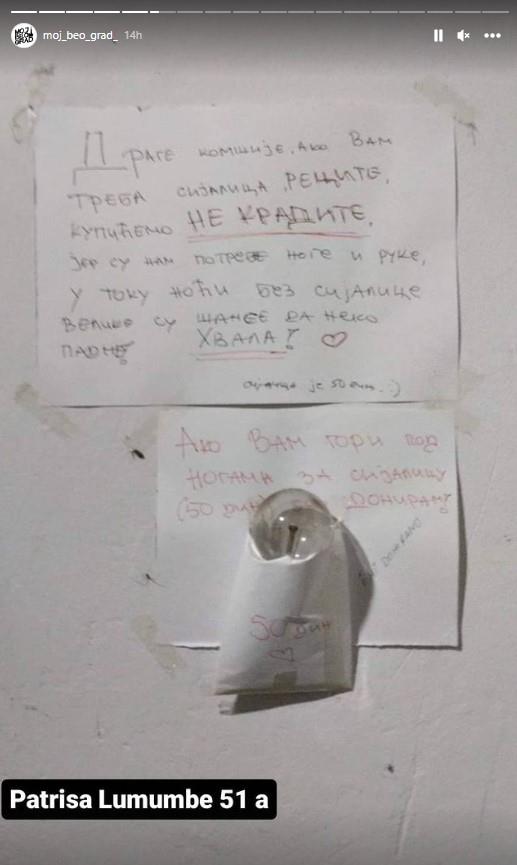 moj_beo_grad_ 14h
MOJ
BEO
GRAD
ДРАГЕ КОМШИЈЕ, АКО ВАМ
ТРЕБА СИЈАЛИЦА, РЕЦИТЕ,
КУПИЋЕМО НЕ КРАДИТЕ,
ЈЕР СУ НАМ ПОТРЕБЕ НОГЕ И РУКЕ,
У ТОКУ НОЋИ БЕЗ СИЈАЛИЦЕ
ВЕЛИКЕ СУ ШАНСЕ ДА НЕКО
ПАДНЕ ХВАЛА!
сијалица је 50 дин. :)
АКО ВАМ ГОРИ ПОД
НОГАМА ЗА СИЈАЛИЦУ
(50 ДИН) ДОНИРАМ!
50 дин
Patrisa Lumumbe 51 a